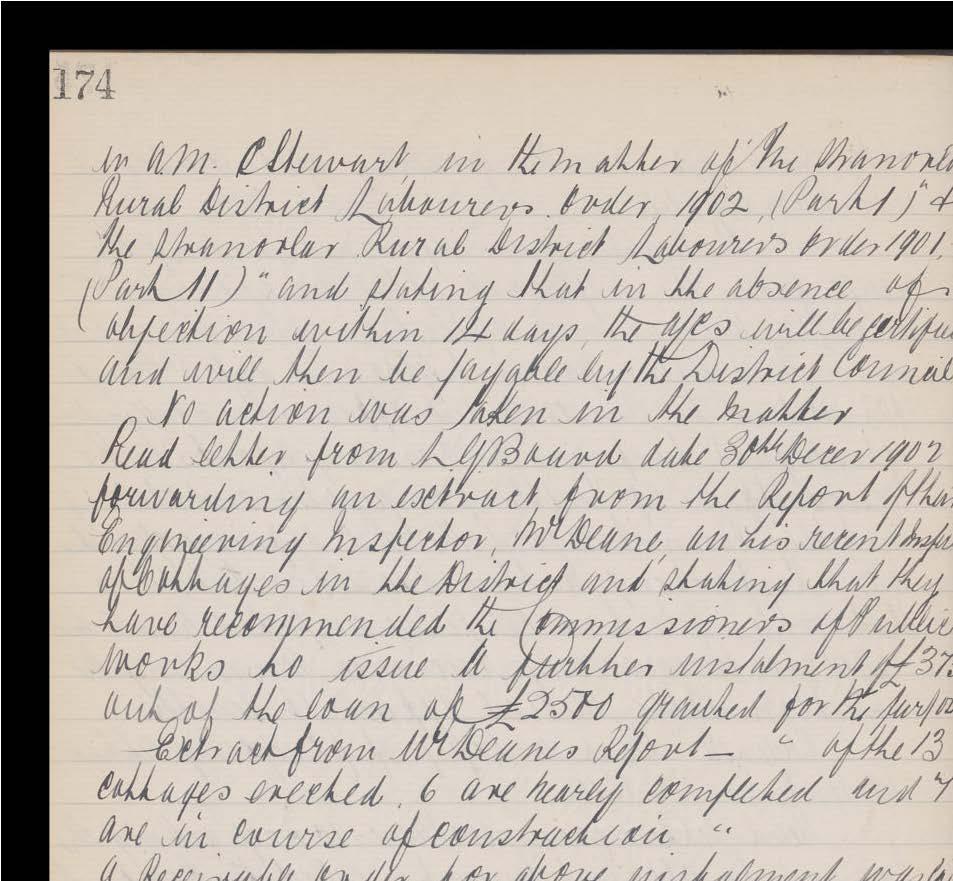 174
in A.M. C Stewart, in the matter of "The Stranorla
Rural District Labourers Order, 1902, (Part 1)" &
the Stranorlar Rural District Labourers Order 1901,
(Part 11)" and stating that in the absence of
objection within 14 days, the will be certifie
and will then be payable by the District Council
No action was taken in the matter
Read letter from L G Board date 30th Decer 1902
forwarding an extract from the Report of thei
Engineering Inspector, Mr Deane, on his recent Inspe
of Cottages in the District and stating that they
have recommended the Commissioners of Public
Works to issue a further instalment of £37
out of the loan of £2500 granted for the purpo
Extract from Mr Deanes Report — " of the 13
cottages erected, 6 are nearly completed and 7
are in course of construction "
a Receivable order for above instalment was